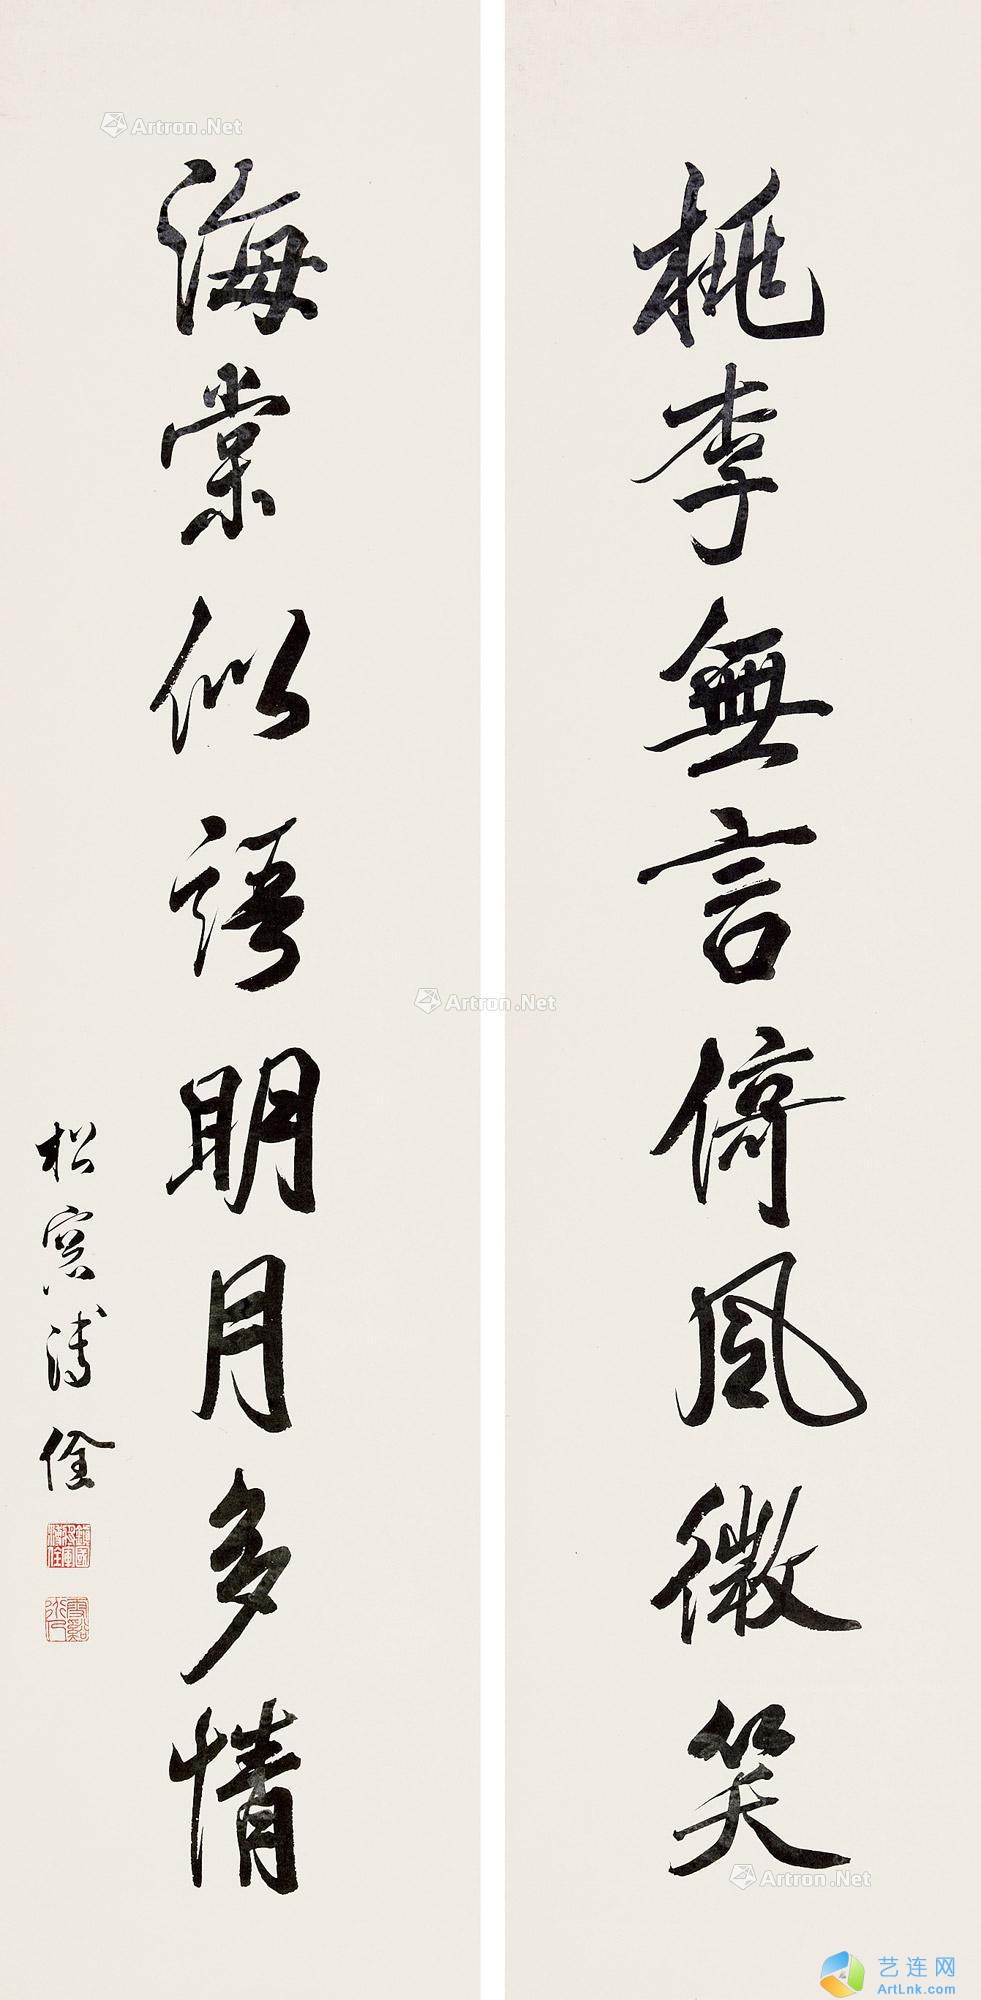 桃李無言倚風微笑
海棠似語明月多情
松窗溥佺
Artron.Net
Artron.Net
Artron.Net
艺连网
ArtLnk.com